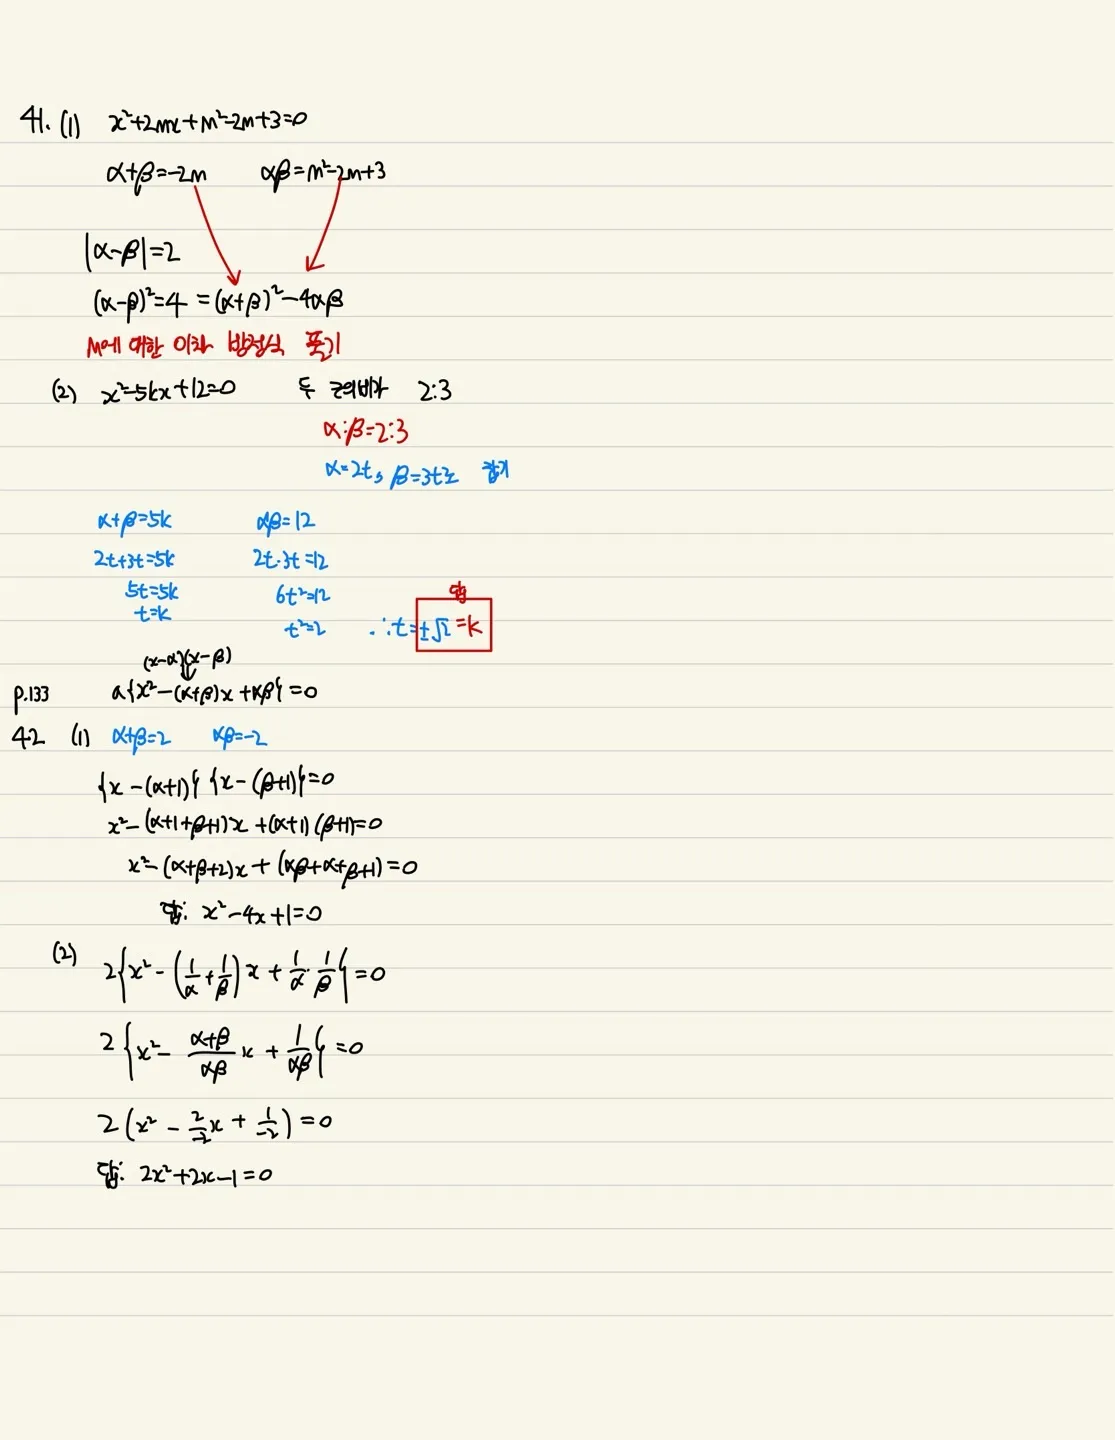 41. (1) x²+2mx+m²-2m+3=0
α+β=-2m αβ=m²-2m+3
|α-β|=2
(α-β)²=4 =(α+β)²-4αβ
m에 대한 이차 방정식 풀기
(2) x²-5kx+12=0 두 근의비가 2:3
α:β=2:3
α=2t, β=3t로 잡기
α+β=5k αβ=12
2t+3t=5k 2t·3t=12
5t=5k 6t²=12
답
t=k t²=2 ∴t=±√2 =k
(x-α)(x-β)
p.133 a{x²-(α+β)x+αβ}=0
42 (1) α+β=2 αβ=-2
{x-(α+1)}{x-(β+1)}=0
x²-(α+1+β+1)x+(α+1)(β+1)=0
x²-(α+β+2)x+(αβ+α+β+1)=0
답: x²-4x+1=0
(2) 2{x²-(1/α+1/β)x+1/α·1/β}=0
2{x²-(α+β)/(αβ)x+1/(αβ)}=0
2(x²-2/-2x+1/-2)=0
답: 2x²+2x-1=0